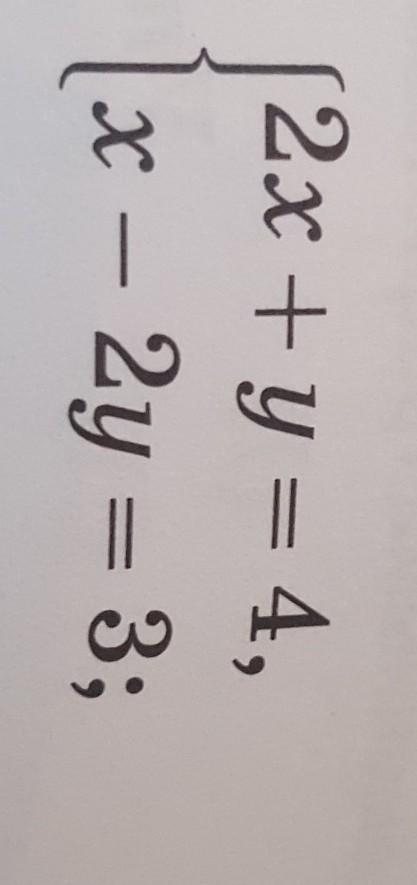 2x + y = 4,
x − 2y = 3;